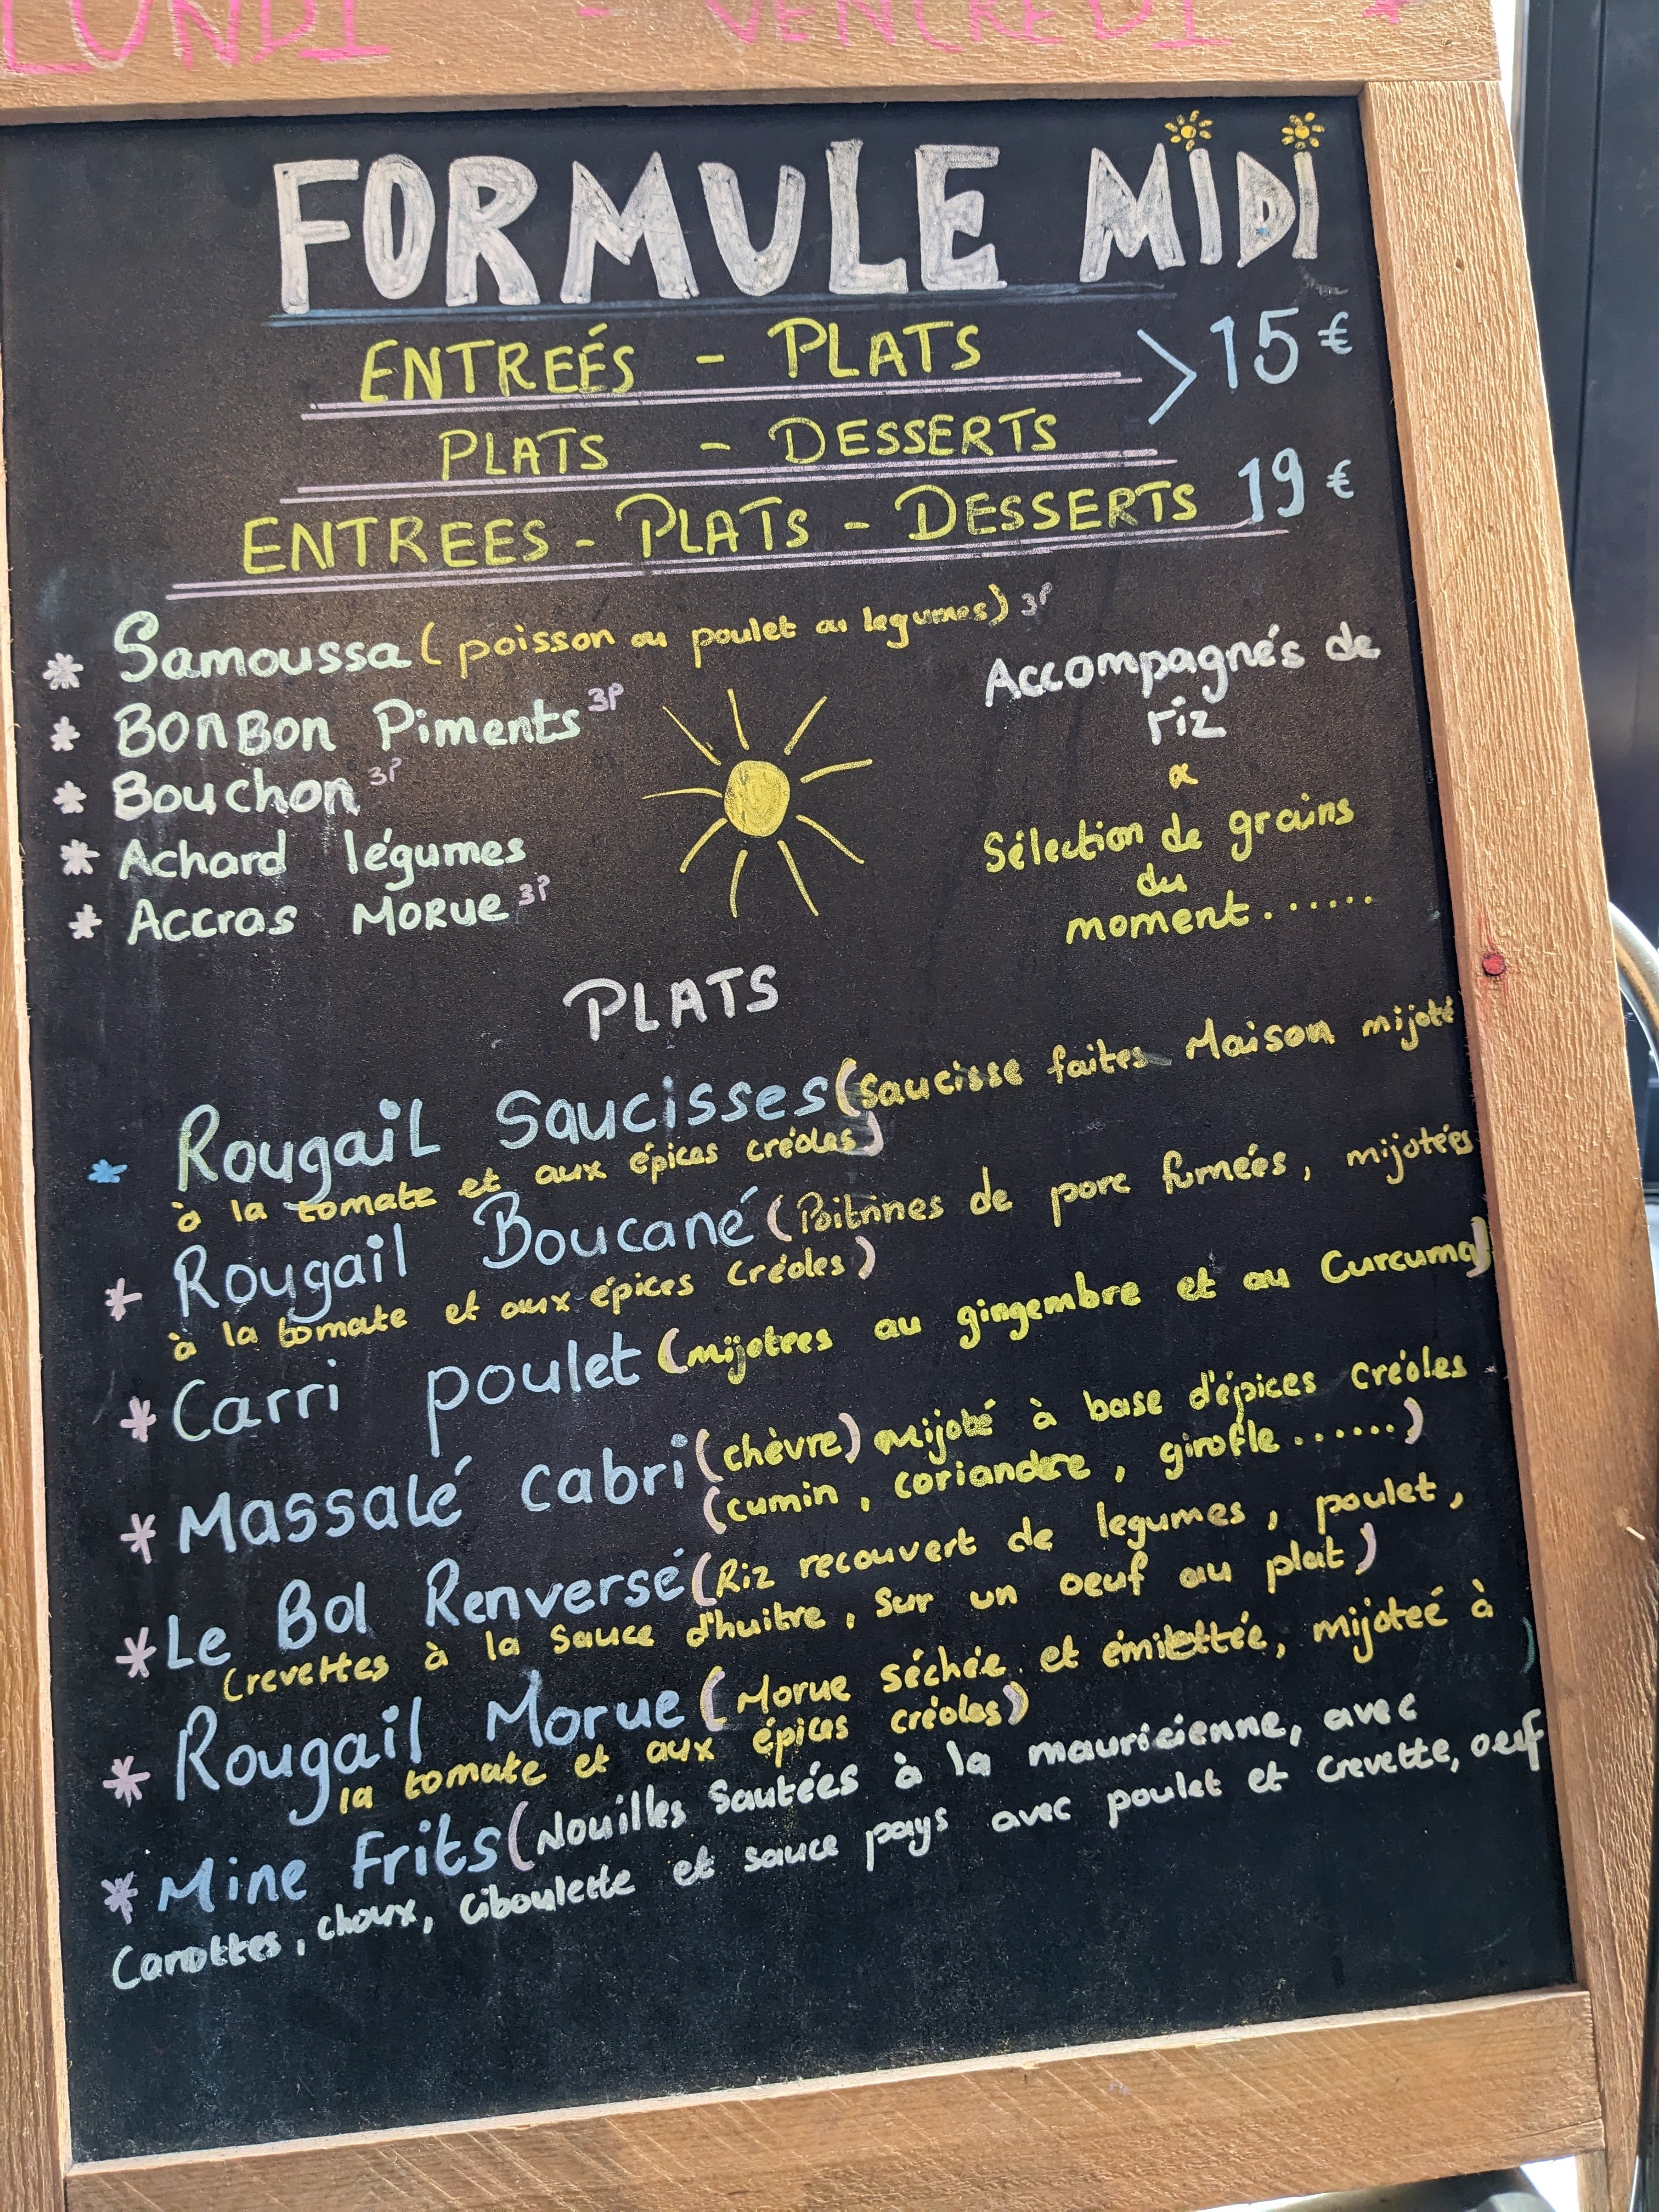 LUNDI - VENDREDI *
FORMULE MIDI
ENTREÉS - PLATS
PLATS - DESSERTS
> 15 €
ENTREES - PLATS - DESSERTS 19 €
* Samoussa (poisson ou poulet ou legumes) 3P
* BonBon Piments 3P
* Bouchon 3P
* Achard légumes
* Accras Morue 3P
Accompagnés de
riz
&
Sélection de grains
du
moment.......
PLATS
* Rougail Saucisses (Saucisse faites Maison mijoté
à la tomate et aux épices créoles)
* Rougail Boucané (Poitrines de porc fumées, mijotées
à la tomate et aux épices Créoles)
* Carri poulet (mijotees au gingembre et au Curcuma)
* Massalé cabri (chèvre) mijoté à base d'épices créoles
(cumin, coriandre, girofle......)
* Le Bol Renversé (Riz recouvert de legumes, poulet,
Crevettes à la Sauce d'huitre, Sur un oeuf au plat)
* Rougail Morue (Morue séchée et émiettée, mijoteé à
la tomate et aux épices créoles)
* Mine Frits (Nouilles Sautées à la mauricienne, avec
Carottes, choux, Ciboulette et sauce pays avec poulet et Crevette, oeuf